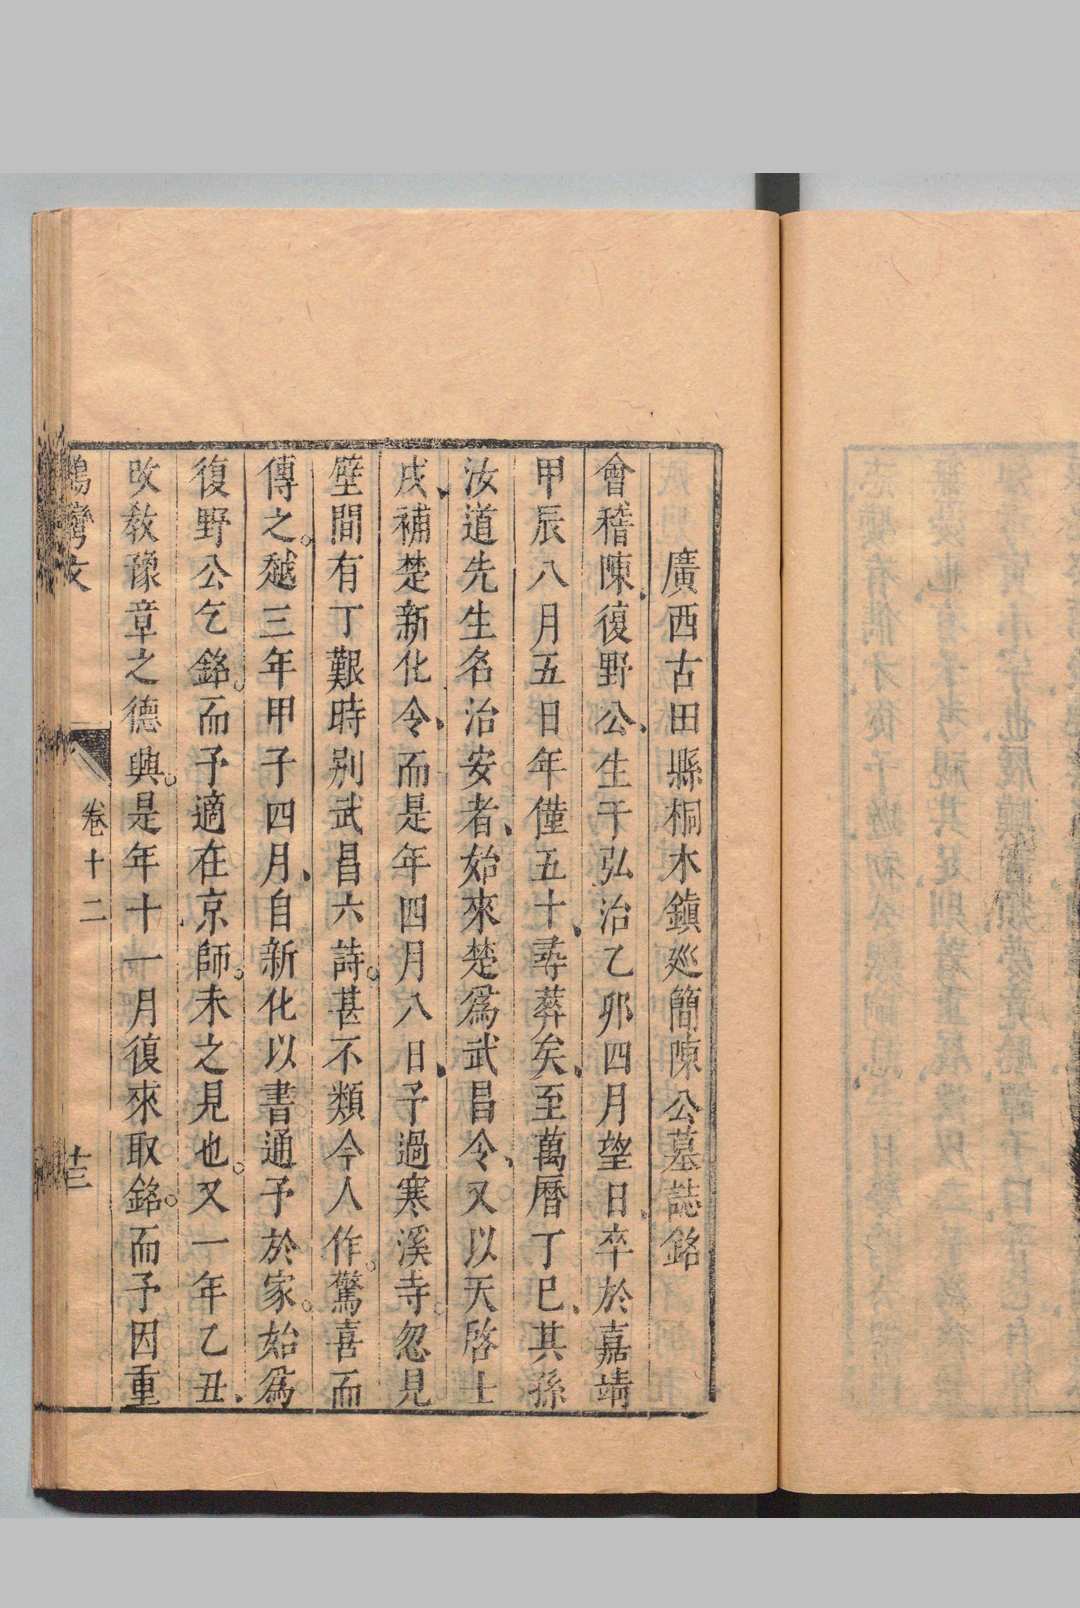 廣西古田縣桐木鎮廵簡陳公墓誌銘
會稽陳復野公生于弘治乙夘四月望日卒於嘉靖
甲辰八月五日年僅五十尋葬矣至萬曆丁巳其孫
汝道先生名治安者始來楚爲武昌令又以天啓壬
戌補楚新化令而是年四月八日予過寒溪寺忽見
壁間有丁艱時别武昌六詩甚不類今人作驚喜而
傳之越三年甲子四月自新化以書通予於家始爲
復野公乞銘而予適在京師未之見也又一年乙丑
改教豫章之德興是年十一月復來取銘而予因重
鵠灣文
卷十二